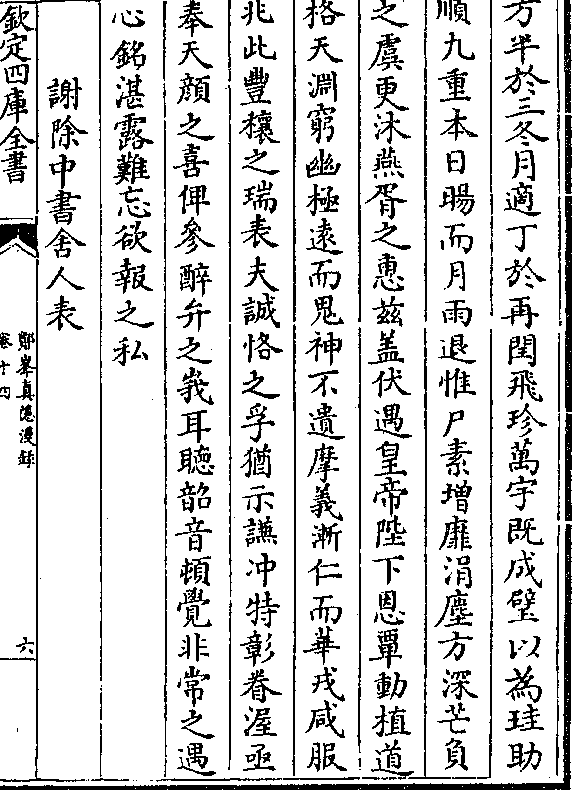 方半於三冬月適丁於再閏飛珍萬宇既成璧以為珪助
順九重本日暘而月雨退惟尸素増靡涓塵方深芒負
之虞更沐燕胥之惠兹盖伏遇皇帝陛下恩覃動植道
格天淵窮幽極逺而鬼神不遺摩義漸仁而華戎咸服
兆此豐穰之瑞表夫誠恪之孚猶示謙冲特彰眷渥亟
奉天顔之喜俾參醉弁之峩耳聴韶音頓覺非常之遇
心銘湛露難忘欲報之私
謝除中書舍人表
欽定四庫全書
鄮峯真隠漫録
卷十四
六